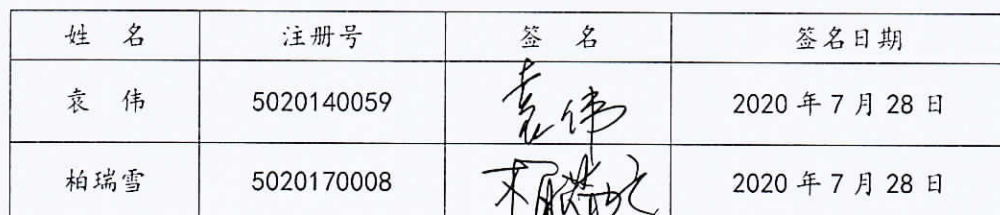 姓 名 注册号 签 名 签名日期
袁 伟 5020140059 袁伟 2020 年 7 月 28 日
柏瑞雪 5020170008 2020 年 7 月 28 日